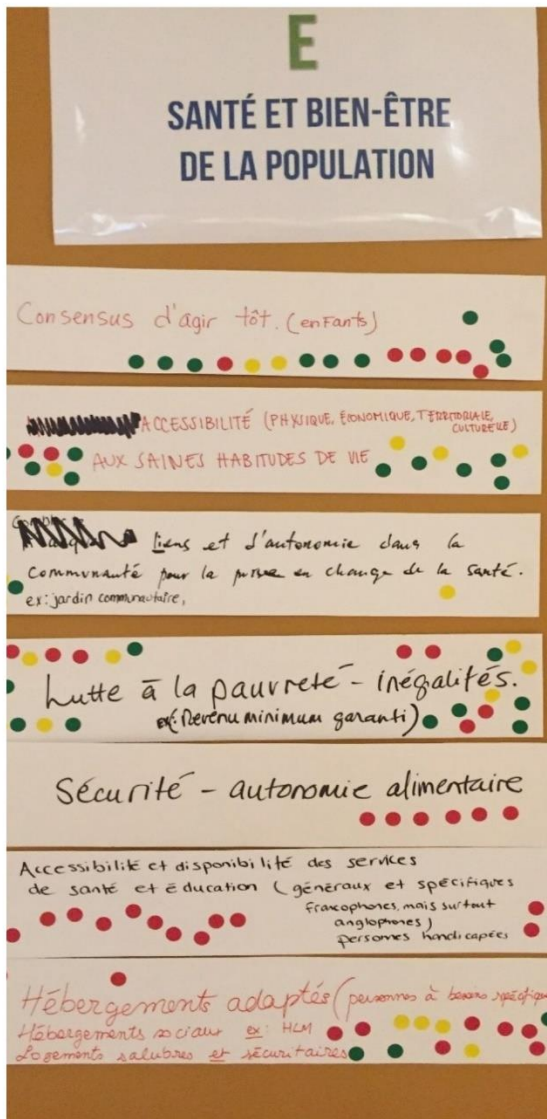 E
SANTÉ ET BIEN-ÊTRE
DE LA POPULATION
Consensus d'agir tôt. (enfants)
ACCESSIBILITÉ (PHYSIQUE, ÉCONOMIQUE, TERRITORIALE
CULTURELLE)
AUX SAINES HABITUDES DE VIE
liens et d'autonomie dans la
Communauté pour la prise en charge de la santé.
ex: jardin communautaire,
Lutte à la pauvreté - inégalités.
ex: Revenu minimum garanti)
Sécurité - autonomie alimentaire
Accessibilité et disponibilité des services
de santé et éducation (généraux et spécifiques
francophones, mais surtout
anglophones)
personnes handicapées
Hébergements adaptés (personnes à besoins spécifique
Hébergements sociaux ex: HLM
Logements salubres et sécuritaires